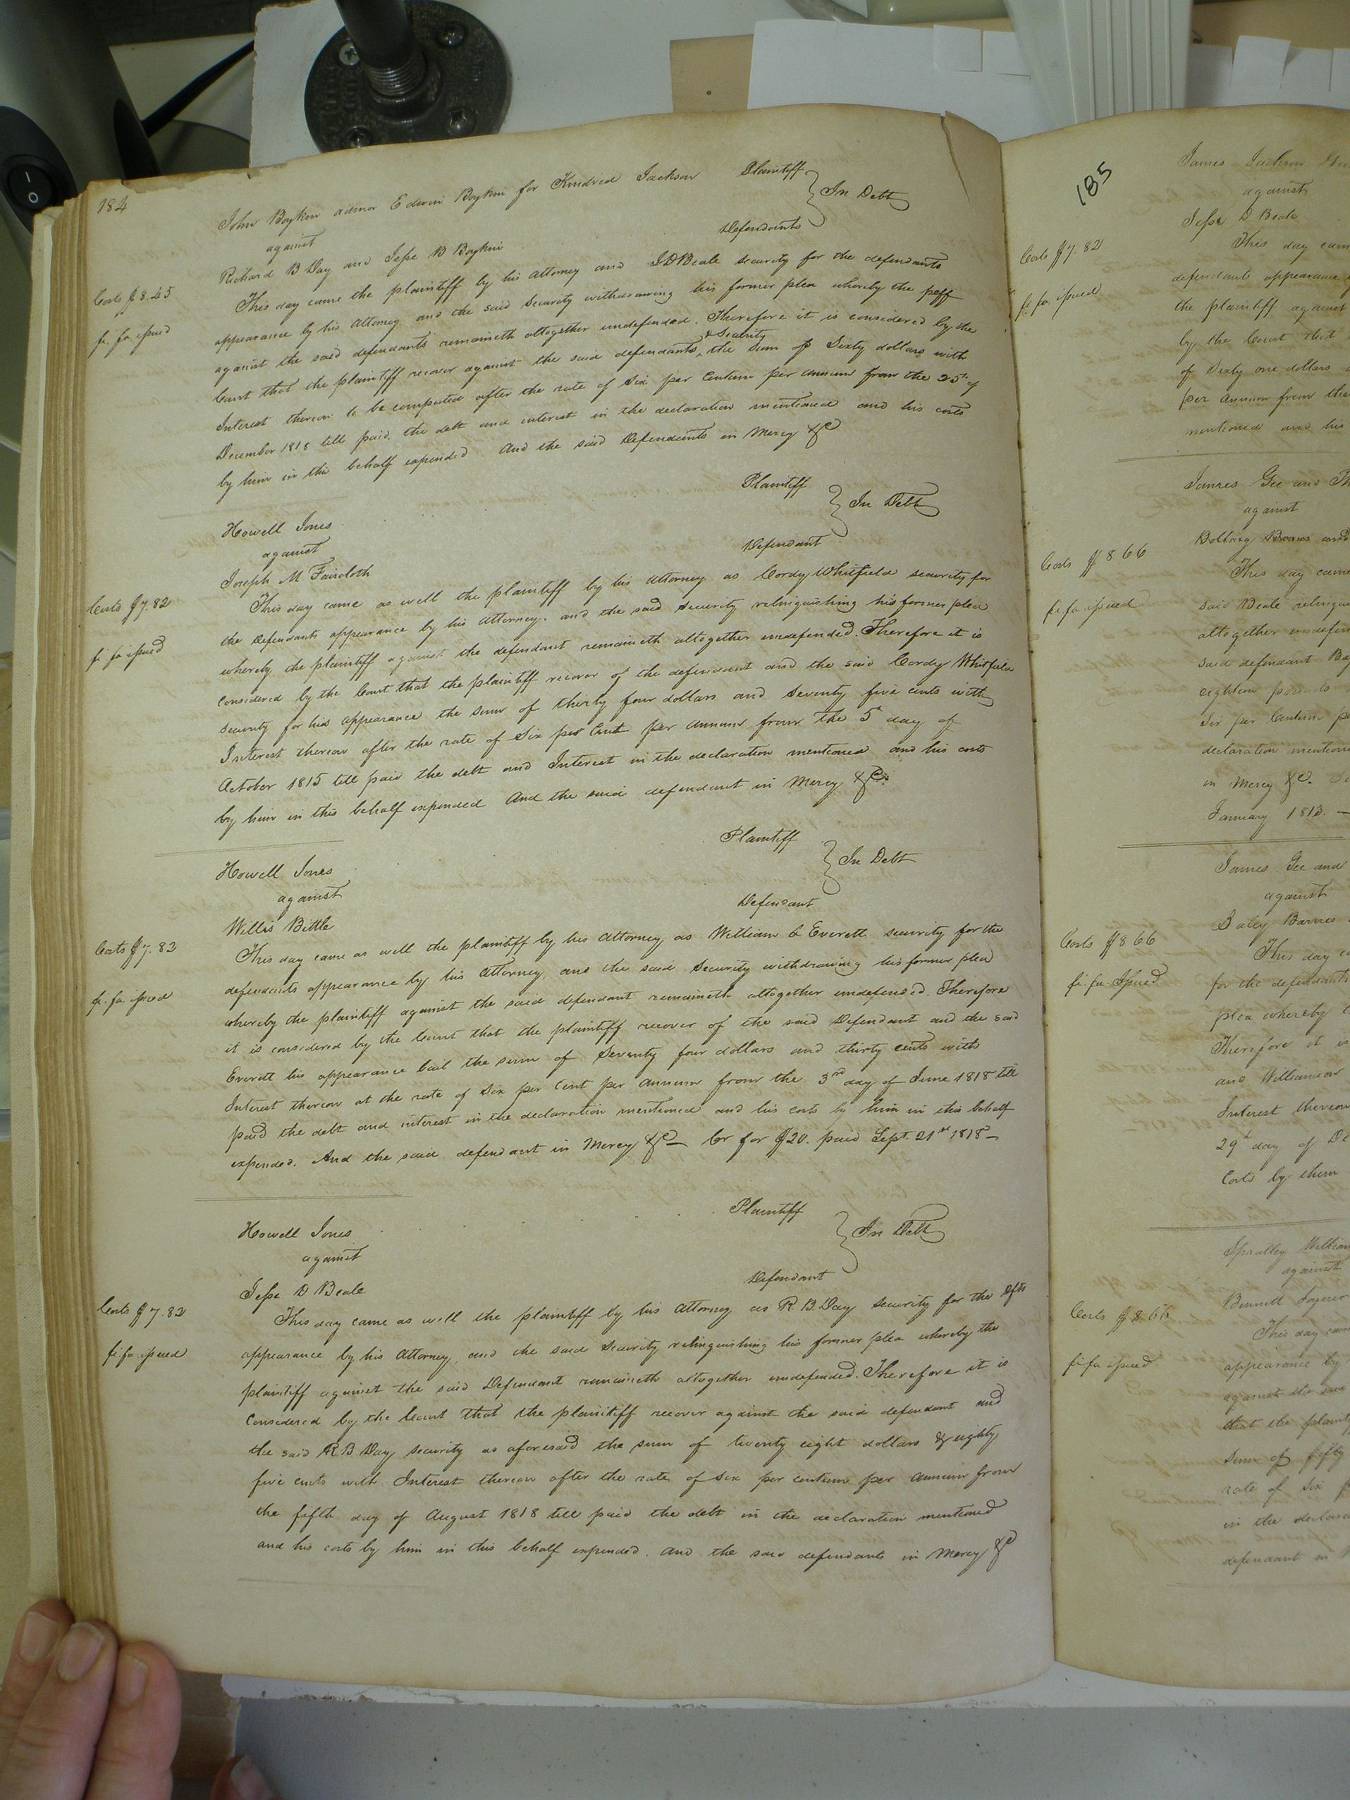 184
John Boykin admor Edwin Boykin for Kindred Jackson Plaintiff
against } In Debt
Richard B Day and Jesse B Boykin Defendants
Costs $8.45
fi. fa. issued
This day came the plaintiff by his attorney and J D Beale security for the defendants
appearance by his attorney and the said security withdrawing his former plea whereby the ptff
against the said defendants remaineth altogether undefended. Therefore it is considered by the
Court that the plaintiff recover against the said defendants & Security the sum of Sixty dollars with
Interest thereon to be computed after the rate of Six per Centum per annum from the 25th of
December 1818 till paid, the debt and interest in the declaration mentioned and his costs
by him in this behalf expended And the said Defendants in Mercy &c
Howell Jones Plaintiff
against } In Debt
Joseph M Faircloth Defendant
Costs $7.82
fi. fa. issued
This day came as well the plaintiff by his attorney as Cordy Whitfield security for
the defendants appearance by his attorney. and the said security relinquishing his former plea
whereby the plaintiff against the defendant remaineth altogether undefended. Therefore it is
considered by the Court that the plaintiff recover of the defendant and the said Cordy Whitfield
security for his appearance the sum of thirty four dollars and seventy five cents with
Interest thereon after the rate of Six per Cent per annum from the 5th day of
October 1815 till paid the debt and Interest in the declaration mentioned and his costs
by him in this behalf expended And the said defendant in Mercy &c.
Howell Jones Plaintiff
against } In Debt
Willis Bittle Defendant
Costs $7.83
fi. fa. issued
This day came as well the plaintiff by his attorney as William C Everett security for the
defendants appearance by his attorney, and the said security withdrawing his former plea
whereby the plaintiff against the said defendant remaineth altogether undefended. Therefore
it is considered by the Court that the plaintiff recover of the said Defendant and the said
Everett his appearance bail the sum of Seventy four dollars and thirty cents with
Interest thereon at the rate of Six per Cent per annum from the 3rd day of June 1818 till
paid the debt and interest in the declaration mentioned and his costs by him in this behalf
expended. And the said defendant in Mercy &c — Cr for $20. paid Sept. 21st 1818 —
Howell Jones Plaintiff
against } In Debt
Jesse D Beale Defendant
Costs $7.82
fi. fa. issued
This day came as well the plaintiff by his attorney as R B Day security for the defts
appearance by his attorney. and the said security relinquishing his former plea whereby the
plaintiff against the said Defendant remaineth altogether undefended. Therefore it is
Considered by the Court that the plaintiff recover against the said defendant and
the said R B Day security as aforesaid the sum of twenty eight dollars & eighty
five cents with Interest thereon after the rate of six per centum per annum from
the fifth day of August 1818 till paid the debt in the declaration mentioned
and his costs by him in this behalf expended. and the said defendants in mercy &c
185
James Jackson
against
Jesse D Beale
Costs $7.82
fi fa issued
This day came
defendants appearance
the plaintiff against
by the Court that
of Sixty one dollars
per annum from the
mentioned and his
James Gee and
against
Bolling Barnes and
Costs $8 66
fi. fa issued
This day came
said Beale relinqu
altogether undefen
said defendant
eighteen
Six per Centum
declaration mention
in Mercy &c.
January 1813. —
James Gee and
against
Costs $8 66
fi. fa. Issued
This day
for the defendants
plea whereby
Therefore it
and Williamson
Interest thereon
29th day of De
Costs by them
Spratley William
against
Costs $8 66
fi fa issued
This day came
appearance by
against the said
that the plaint
sum of fifty
rate of Six
in the declara
defendant in